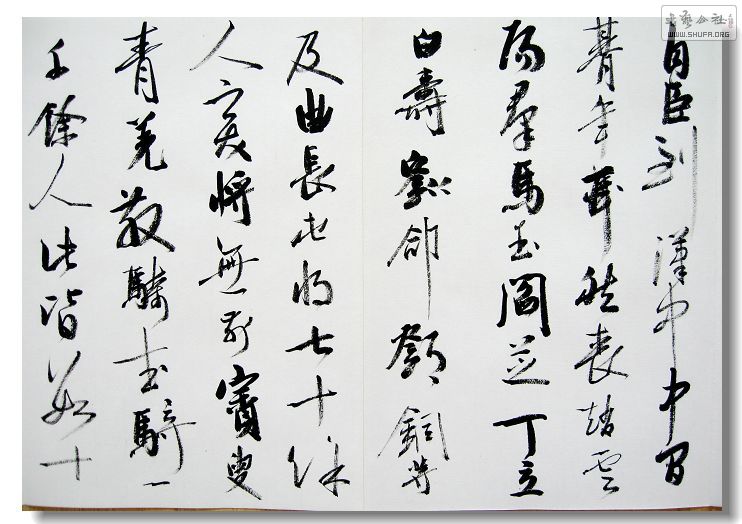 自臣到漢中中間
朞年耳然喪趙雲
陽羣馬玉閻芝丁立
白壽劉郃鄧銅等
及曲長屯將七十餘
人突將無前賨叟
青羌散騎武騎一
千餘人此皆數十
書藝公社
WWW.SHUFA.ORG